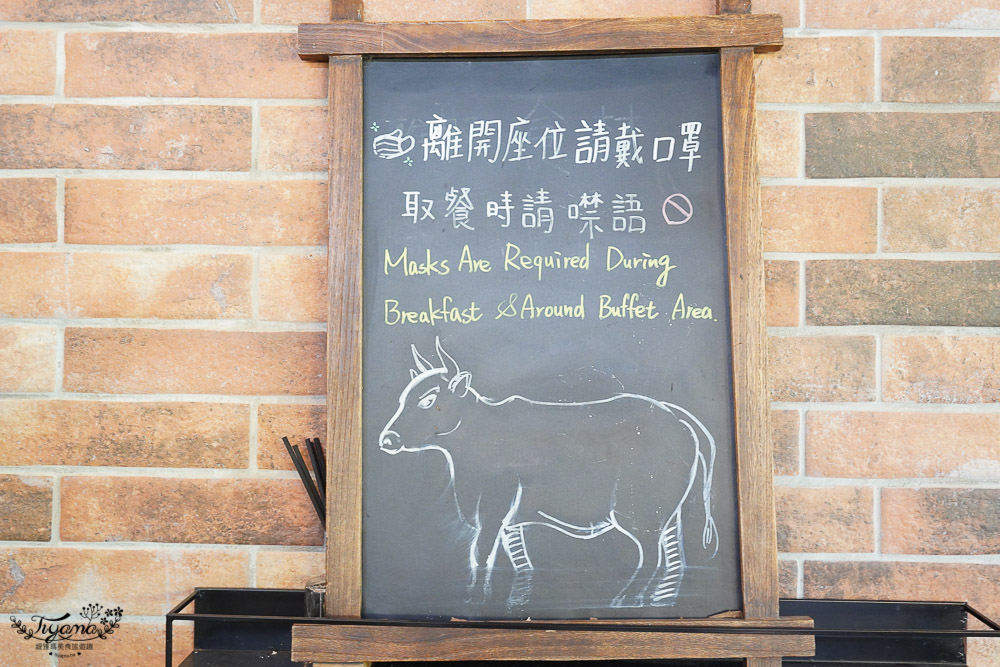 離開座位請戴口罩
取餐時請噤語
Masks Are Required During
Breakfast & Around Buffet Area.
Tiyama